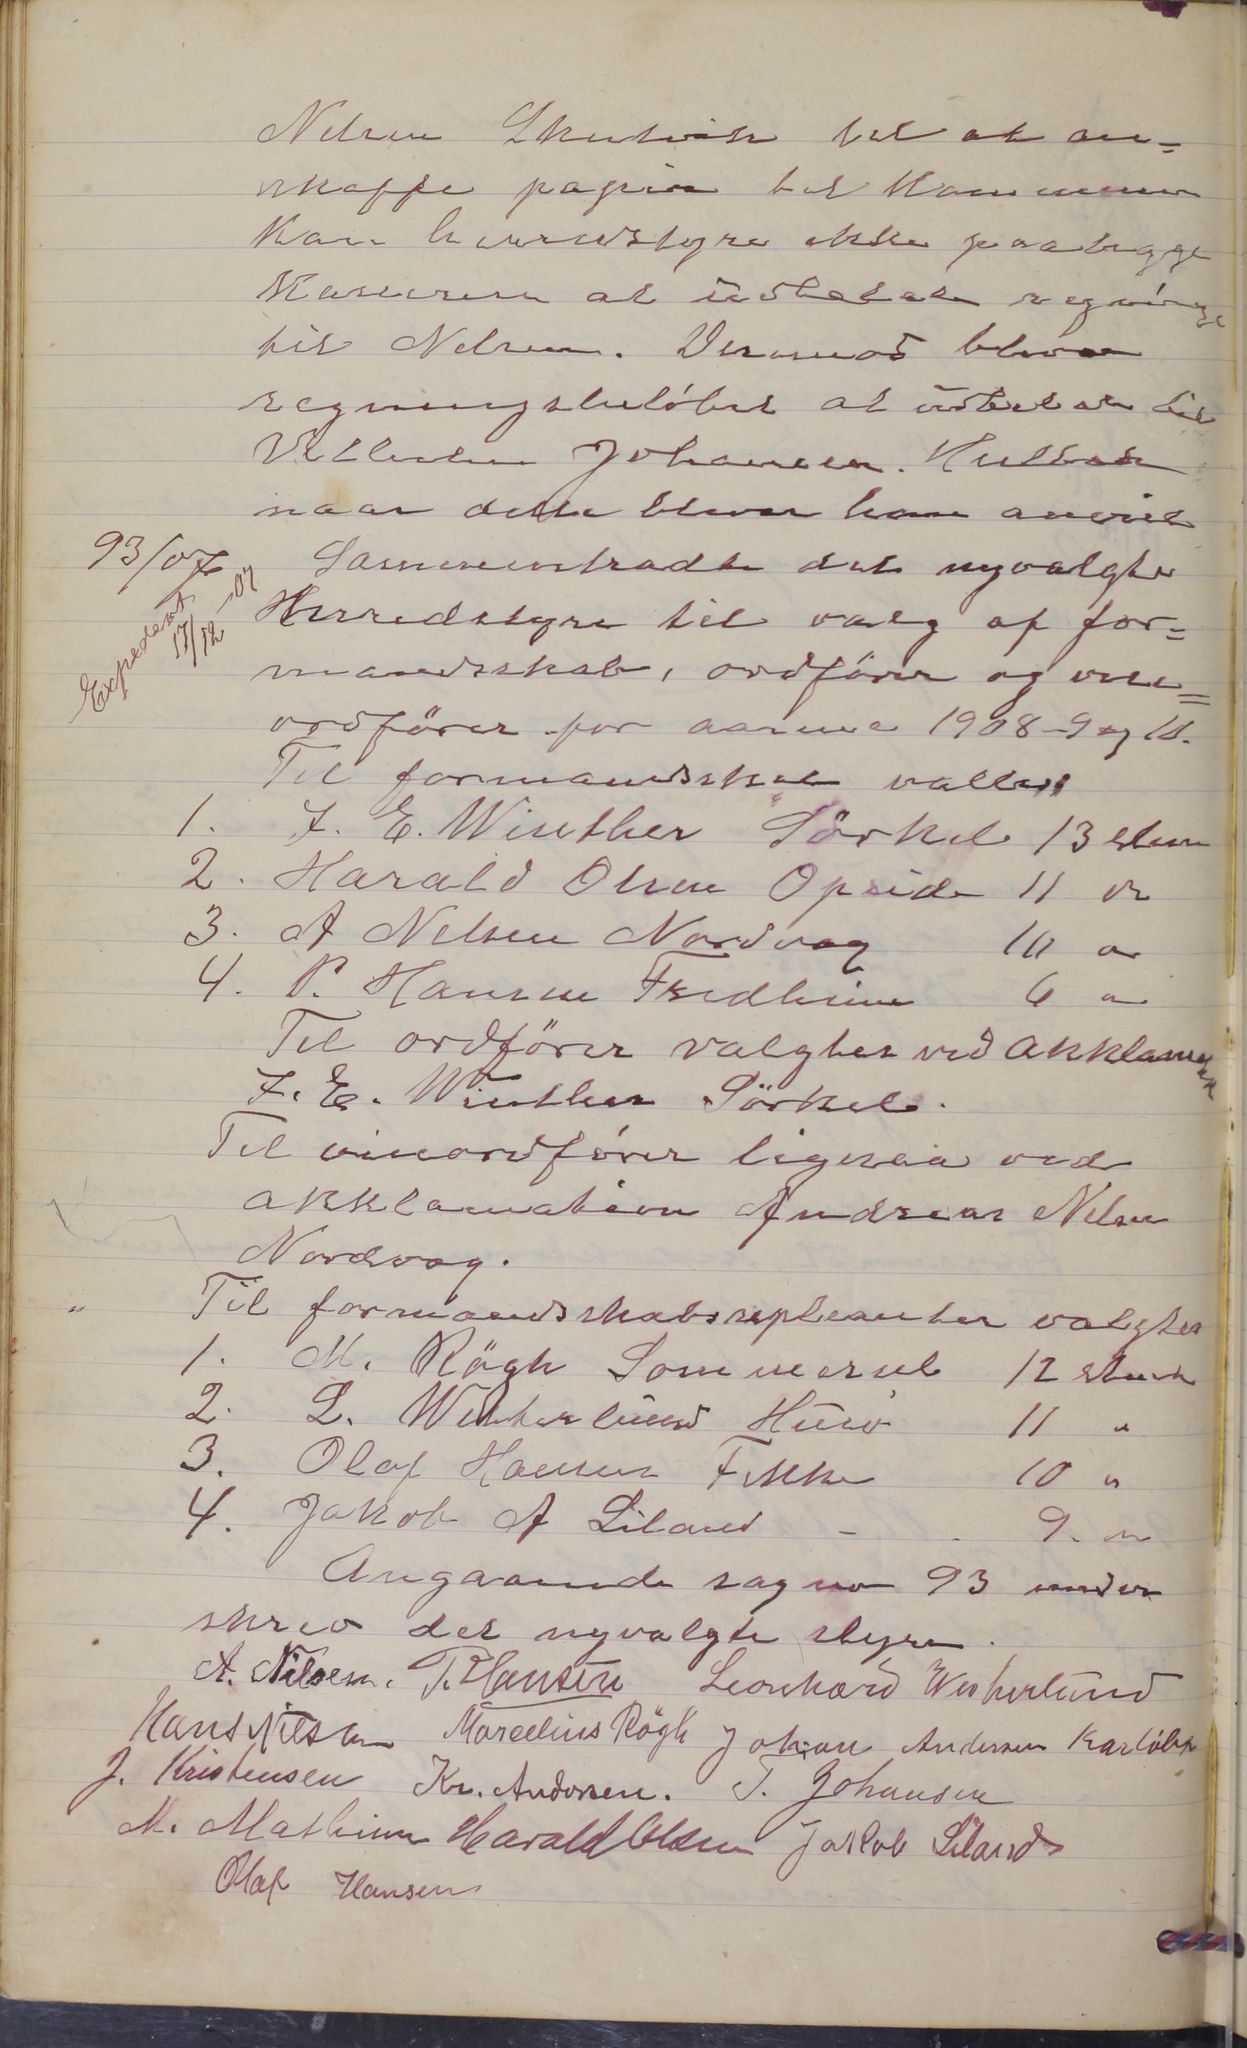 Nelsen Skutvik til at an=
skaffe papir til Kommunen
kan herredstyre ikke paalægge
Kasseren at udbetale regninge
til Nelsen. Derimod bliver
regningsbeløbet at udbetale til
Johansen.
naar dette bliver ham anvist
93/07 Sammentraadte det nyvalgte
Expederet 17/12-07
Herredstyre til valg af for=
mandskab, ordfører og vise=
ordfører for aarene 1908-9 og 10.
Til formandskab valtes
1. F. E. Winther Sørkil 13 stem
2. Harald Olsen Opeide 11 "
3. A Nelsen Nordvag 10 "
4. P. Hansen Fredheim 6 "
Til ordfører valgtes ved akklamation
F. E. Winther Sørkil.
Til viseordfører ligesaa ved
akklamation Andreas Nelsen
Nordvag.
" Til formandskabssupleanter valgtes
1. M. Røgh Sommersel 12 stem
2. L. Westerlund 11 "
3. Olaf Hansen Fikke 10 "
4. Jakob A Liland - - 9. "
Angaaende sag no 93 under
skrev det nyvalgte styre.
A. Nilsen. P. Hansen Leonhard Westerlund
Hans Nilsen Marcelius Røgh Johan Andersen Karløbk
J. Kristensen Kr. Andersen. T. Johansen
M. Mathisen Harald Olsen Jakob Liland
Olaf Hansen